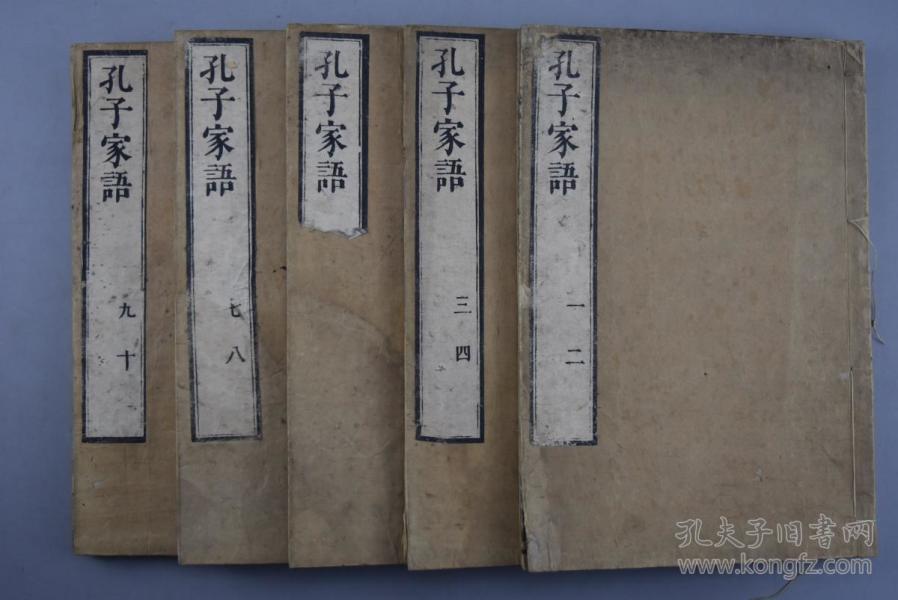 孔子家語
一
二
孔子家語
三
四
孔子家語
孔子家語
七
八
孔子家語
九
十
孔夫子旧书网
www.kongfz.com